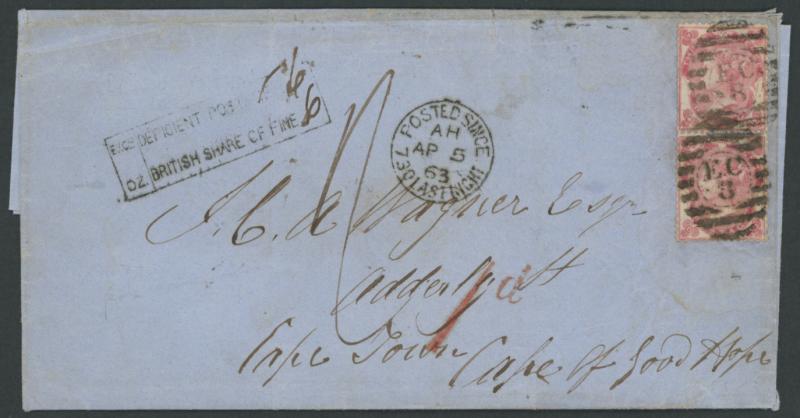 EC
8
EC
8
DEFICIENT POST
OZ. BRITISH SHARE OF FINE
6
POSTED SINCE
AH
AP 5
63
7 30 LAST NIGHT
J. C. A Wagner Esqr
Adderly St
Cape Town Cape of Good Hope